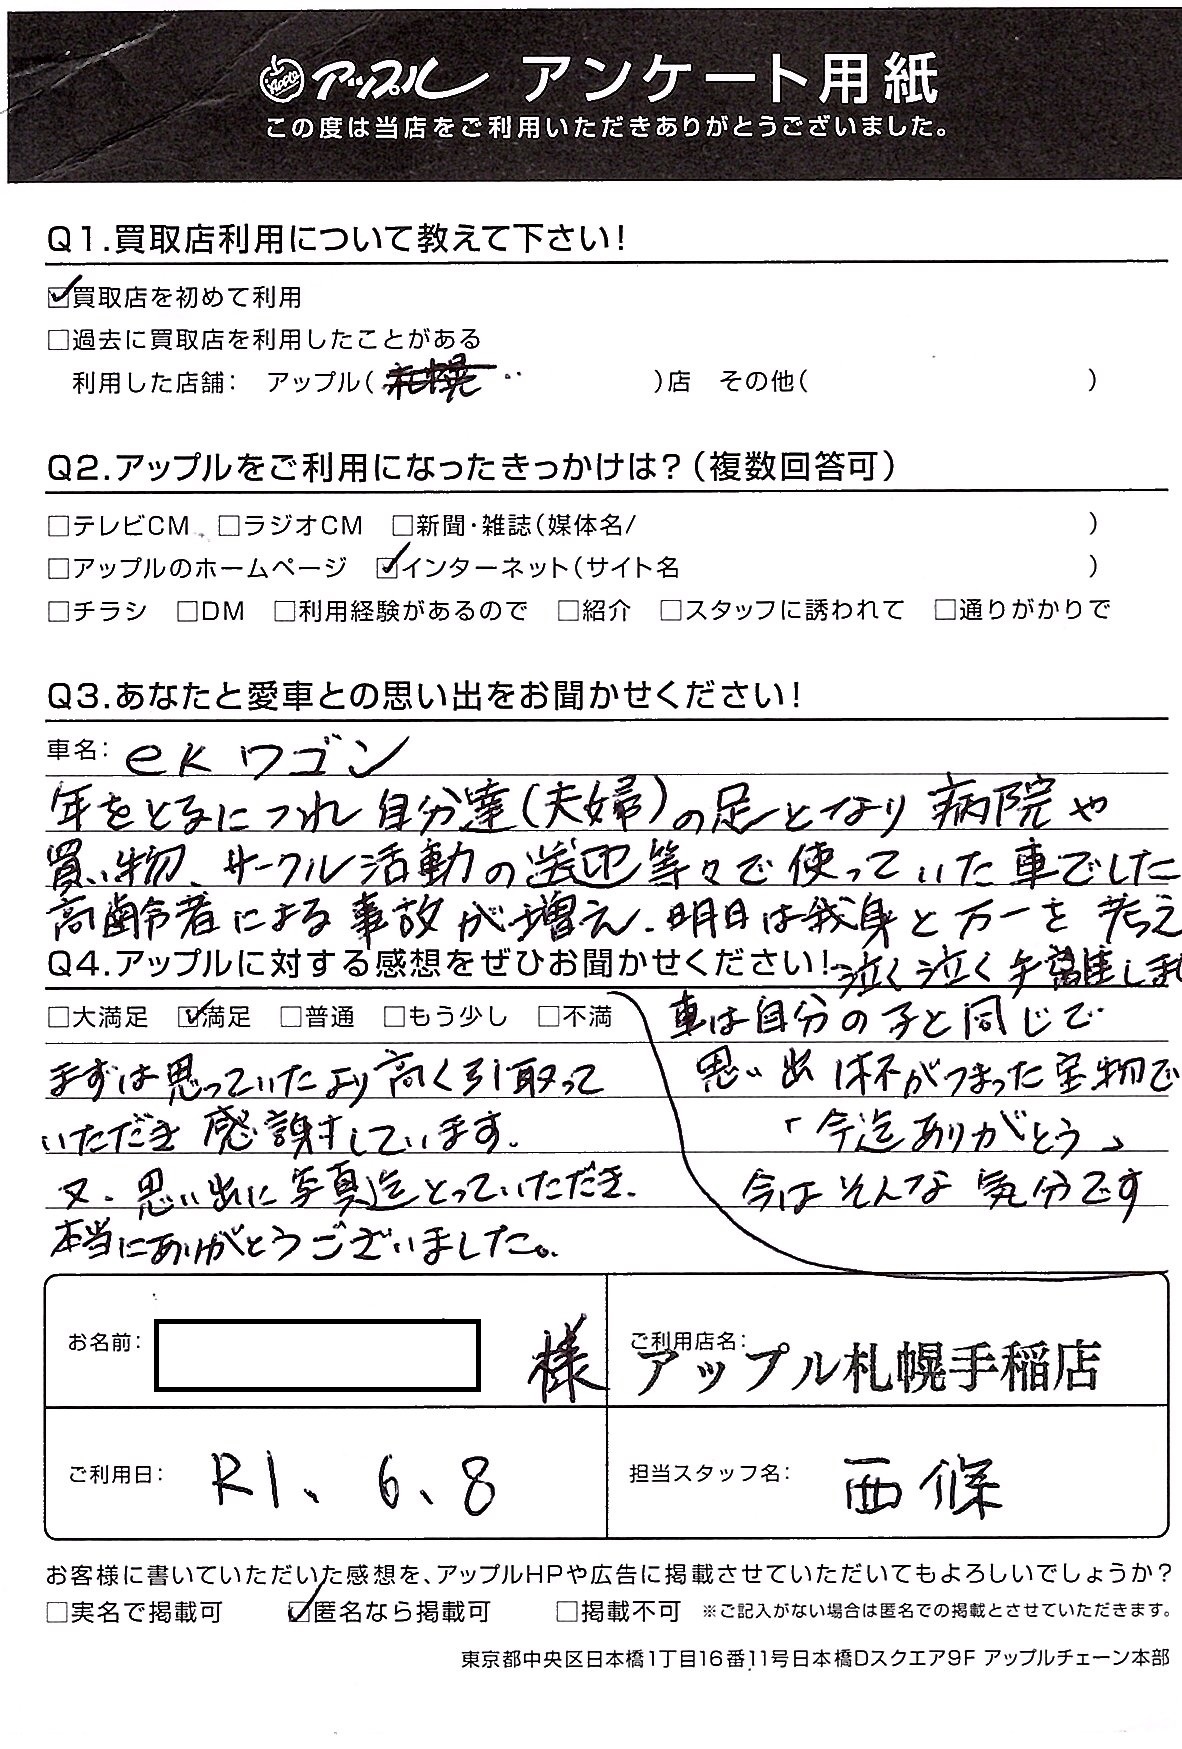 アップル アンケート用紙
この度は当店をご利用いただきありがとうございました。
Q1.買取店利用について教えて下さい!
☑買取店を初めて利用
□過去に買取店を利用したことがある
利用した店舗: アップル(札幌 )店 その他( )
Q2.アップルをご利用になったきっかけは?(複数回答可)
□テレビCM □ラジオCM □新聞・雑誌(媒体名/ )
□アップルのホームページ ☑インターネット(サイト名 )
□チラシ □DM □利用経験があるので □紹介 □スタッフに誘われて □通りがかりで
Q3.あなたと愛車との思い出をお聞かせください!
車名: ekワゴン
年をとるにつれ自分達(夫婦)の足となり病院や
買い物、サークル活動の送迎等々で使っていた車でした
高齢者による事故が増え、明日は我身と万一を考え
泣く泣く手離しま
車は自分の子と同じで
思い出は杯がつまった宝物で
「今迄ありがとう」
今はそんな気分です
Q4.アップルに対する感想をぜひお聞かせください!
□大満足 ☑満足 □普通 □もう少し □不満
まずは思っていたより高く引取って
いただき感謝しています。
又、思い出に写真迄とっていただき、
本当にありがとうございました。
お名前: 様
ご利用店名:
アップル札幌手稲店
ご利用日: R1、6、8
担当スタッフ名: 西條
お客様に書いていただいた感想を、アップルHPや広告に掲載させていただいてもよろしいでしょうか?
□実名で掲載可 ☑匿名なら掲載可 □掲載不可 ※ご記入がない場合は匿名での掲載とさせていただきます。
東京都中央区日本橋1丁目16番11号日本橋Dスクエア9F アップルチェーン本部